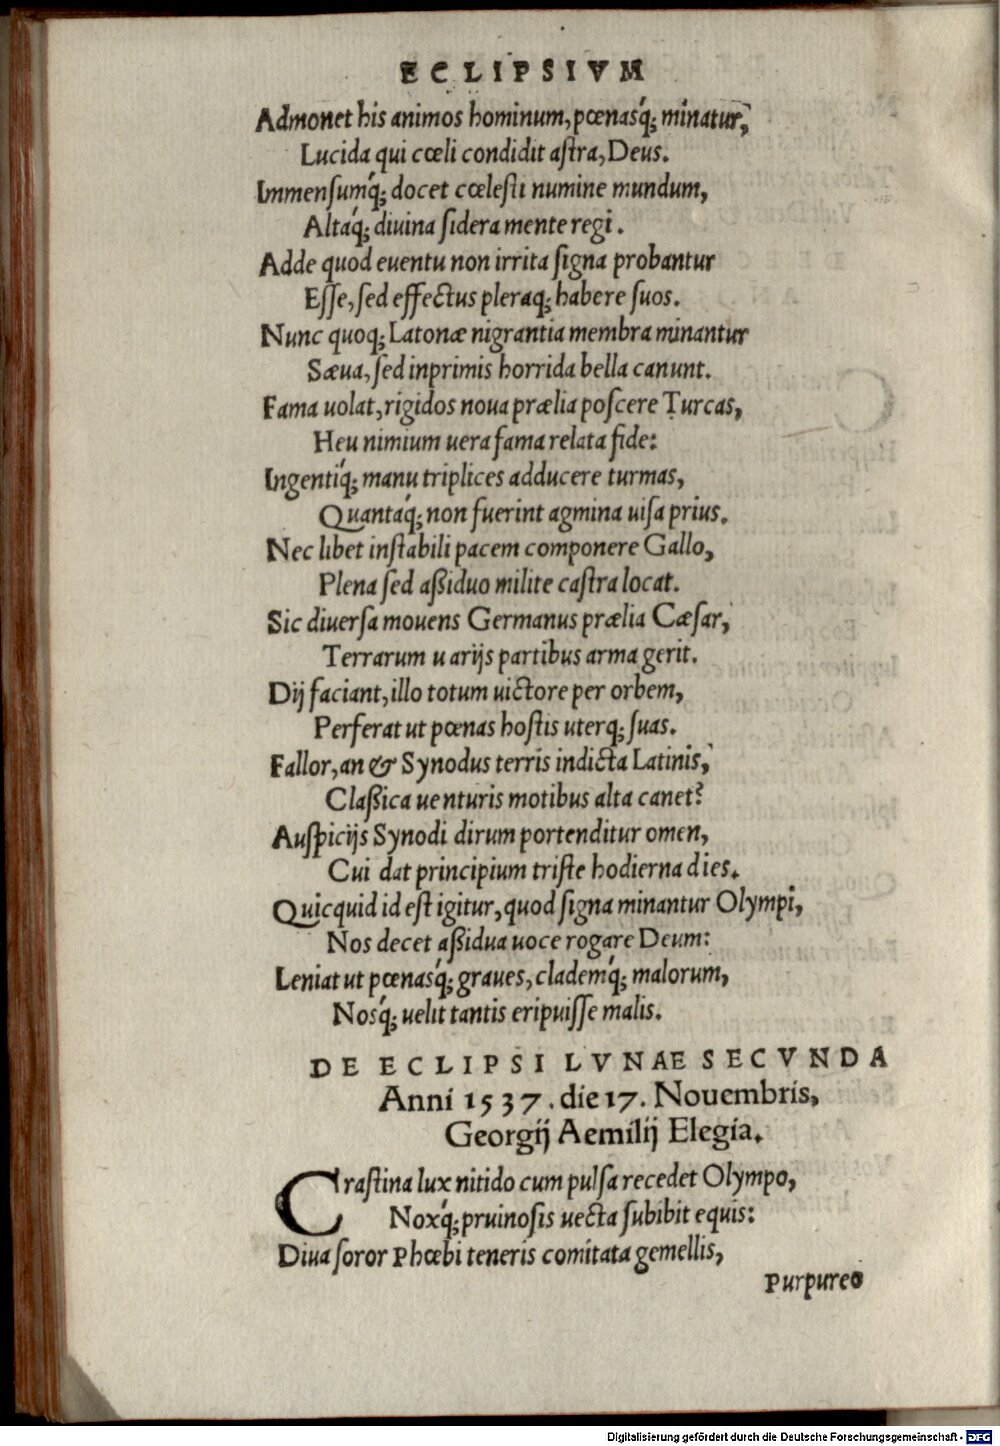 ECLIPSIVM
Admonet his animos hominum, pœnasq́; minatur,
Lucida qui cœli condidit aſtra, Deus.
Immenſumq́; docet cœleſti numine mundum,
Altaq́; diuina ſidera mente regi.
Adde quod euentu non irrita ſigna probantur
Eſſe, ſed effectus pleraq; habere ſuos.
Nunc quoq; Latonæ nigrantia membra minantur
Sæua, ſed inprimis horrida bella canunt.
Fama uolat, rigidos noua prælia poſcere Turcas,
Heu nimium uera fama relata fide:
Ingentiq́; manu triplices adducere turmas,
Quantaq́; non fuerint agmina uiſa prius.
Nec libet inſtabili pacem componere Gallo,
Plena ſed aßiduo milite caſtra locat.
Sic diuerſa mouens Germanus prælia Cæſar,
Terrarum uarijs partibus arma gerit.
Dij faciant, illo totum uictore per orbem,
Perferat ut pœnas hoſtis uterq; ſuas.
Fallor, an & Synodus terris indicta Latinis,
Claßica uenturis motibus alta canet?
Auſpicijs Synodi dirum portenditur omen,
Cui dat principium triſte hodierna dies.
Quicquid id eſt igitur, quod ſigna minantur Olympi,
Nos decet aßidua uoce rogare Deum:
Leniat ut pœnasq́; graues, clademq́; malorum,
Nosq́; uelit tantis eripuiſſe malis.
DE ECLIPSI LVNAE SECVNDA
Anni 1537. die 17. Nouembris,
Georgij Aemilij Elegia.
Craſtina lux nitido cum pulſa recedet Olympo,
Noxq́; pruinoſis uecta ſubibit equis:
Diua ſoror Phœbi teneris comitata gemellis,
Purpureo
Digitalisierung gefördert durch die Deutsche Forschungsgemeinschaft - DFG